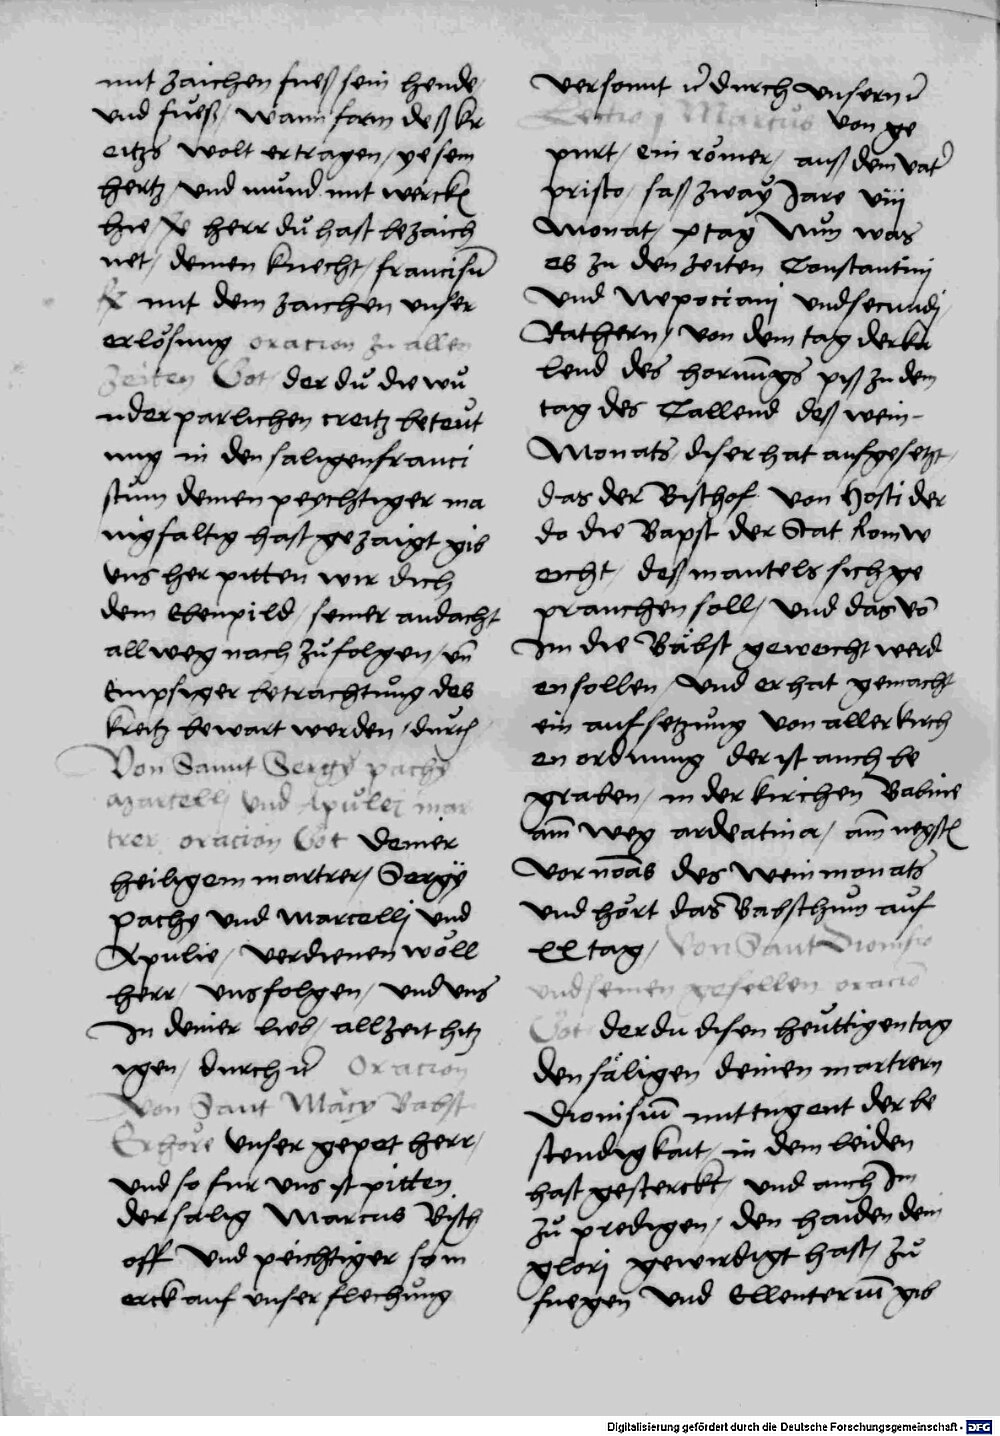 mit zaichen fueß sein hende /
vnd fueß / wann form deß kr
eitzs wolt er tragen / ye sein
hertz / vnd mund mit wercken
hie herr du hast bezaich
net / deinen knecht / francisū
mit dem zaichen vnser
erlösung oracion zu allen
zeiten Got / der du die wu
nderparlichen creitz beteut
ung in den saligen franci
scum deinen peychtiger ma
nigfaltig hast gezaigt gib
vns her pitten wir dich
dem ebenpild / seiner andacht
allweg nach zufolgen / vn̄
empsiger betrachtung des
kreitz bewart werden / durch
Von Sannt Sergy pachy
Marcelli vnd Apulei mar
trer oracion Got deiner
heiligenn martrer / Sergÿ
pachy vnd Marcellj vnd
Apulie / verdienen wöll
herr / vns folgen / vnd vns
In deiner lieb / allzeit hitz
igen / durch v̄ Oracion
von Sant Marx Babst
Erhöre vnser gepet herr /
vnd so fur vns ist pitten
der salig Marcus Bisch
off vnd peichtiger so m
erck auf vnser flechung
versonnt v̄ durch vnsern v̄
Lectio Marcus von ge
purt / ein römer / auß dem vat̄
prisco / saß zway Jare viij
Monat / xx tag Nun was
es zu den zeiten Constantini
vnd Nepociani vnd secundj
Rathern / von dem tag der ka
lend des hornungs piß zu dem
tag des Callend deß wein-
Monats / diser hat aufgesetzt /
das der Bischof von Hosti der
do die Bapst der Stat Rom w
eicht / deß mantels sich ge
prauchen soll / vnd das vō
Im die Bäbst geweicht werd
en sollen / vnd er hat gemacht
ein aufsetzung von aller kirch
en ordnung der ist auch be
graben / in der kirchen Babine
am̄ weg ardeatina / am̄ negstē
vor nonas des Wein monats
vnd hört das Babsthum auf
xx tag / Von Sant Dionisio
vnd seinen gesellen oracio
Got der du disen heuttigen tag
den säligen deinen martrern
Dionisiū mit tugent der be
stendigkait / in dem leiden
hast gesterckt / vnd auch Im
zu predigen / den haiden dein
glorj gewirdigt hast / zu
fuegen vnd Ellenteriū gib
Digitalisierung gefördert durch die Deutsche Forschungsgemeinschaft - DFG